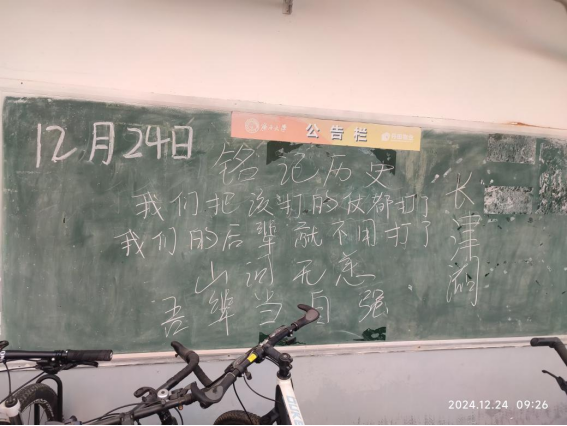 公告栏
12月24日
铭记历史
我们把该打的仗都打了
我们的后辈就不用打了
山河无恙
吾辈当自强
长津湖
2024.12.24 09:26